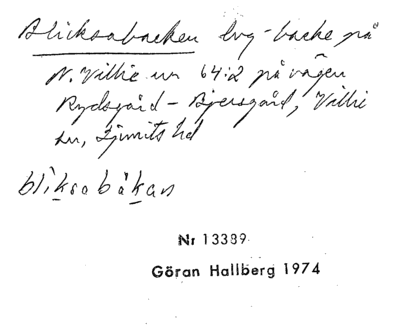 Blicksabacken lvg-backe på
N. Villie nr 64:2 på vägen
Rydsgård - Bjersgård, Villie
sn, Ljunits hd
blìksabákan
Nr 13389
Göran Hallberg 1974